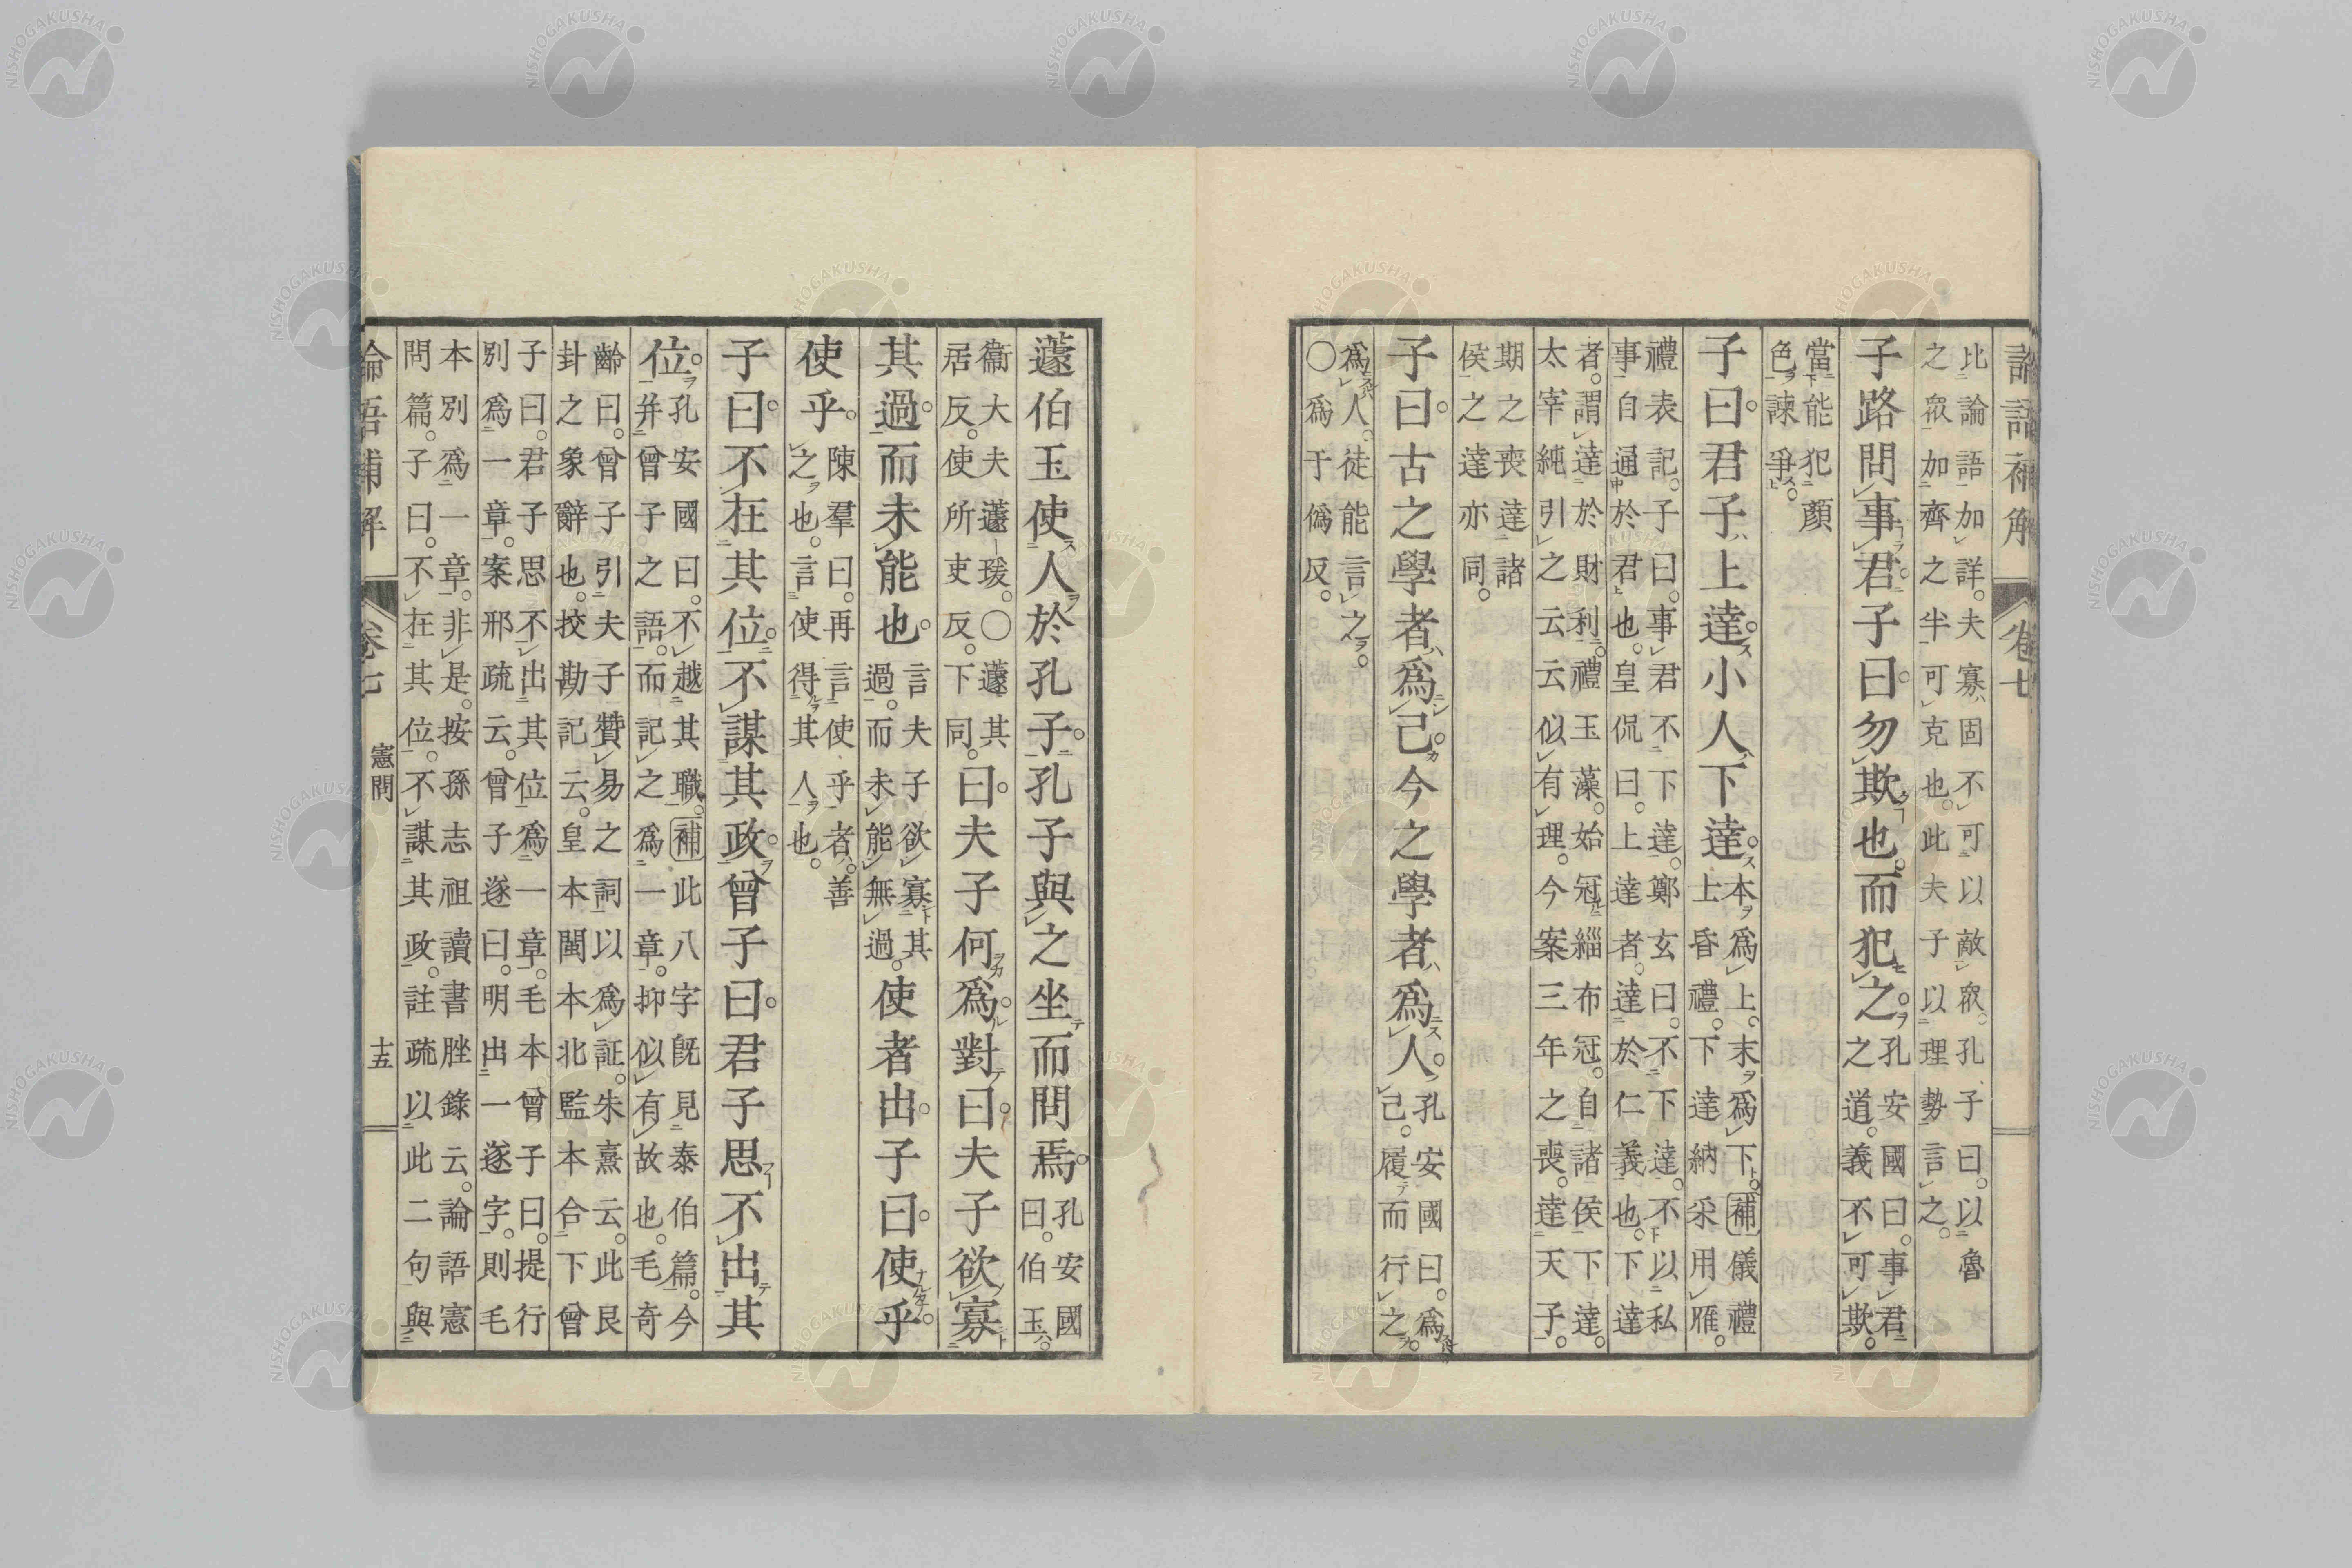 論語補解 卷七
比論語加詳。夫寡固不可以敵衆。孔子曰。以魯
之衆加齊之半可克也。此夫子以理勢言之。
子路問事君子曰勿欺也而犯之。孔安國曰。事君
之道。義不可欺。
當能犯顏
色諫爭。
子曰君子上達小人下達本爲上。末爲下。補儀禮
上昏禮。下達納采用雁。
禮表記。子曰。事君不下達。鄭玄曰。不下達。不以私
事自通於君也。皇侃曰。上達者。達於仁義也。下達
者。謂達於財利。禮玉藻。始冠緇布冠。自諸侯下達。
太宰純引之云云似有理。今案三年之喪。達天子。
期之喪達諸
侯之達亦同。
子曰古之學者爲己今之學者爲人孔安國曰。爲
己。履而行之。
爲人。徒能言之。
〇爲于僞反。
蘧伯玉使人於孔子孔子與之坐而問焉孔安國
曰。伯玉。
衞大夫蘧瑗。〇蘧其
居反。使所吏反。下同。曰夫子何爲對曰夫子欲寡
其過而未能也言夫子欲寡其
過。而未能無過。使者出子曰使乎
使乎陳羣曰。再言使乎者。善
之也。言使得其人也。
子曰不在其位不謀其政曾子曰君子思不出其
位孔安國曰。不越其職。補此八字旣見泰伯篇。今
并曾子之語。而記之爲一章。抑似有故也。毛奇
齡曰。曾子引夫子贊易之詞以爲証。朱熹云。此艮
卦之象辭也。挍勘記云。皇本閩本北監本合下曾
子曰。君子思不出其位爲一章。毛本曾子曰。提行
別爲一章。案邢疏云。曾子遂曰。明出一遂字。則毛
本別爲一章。非是。按孫志祖讀書脞錄云。論語憲
問篇。子曰。不在其位。不謀其政。註疏以此二句與
論語補解 卷七 憲問 十五